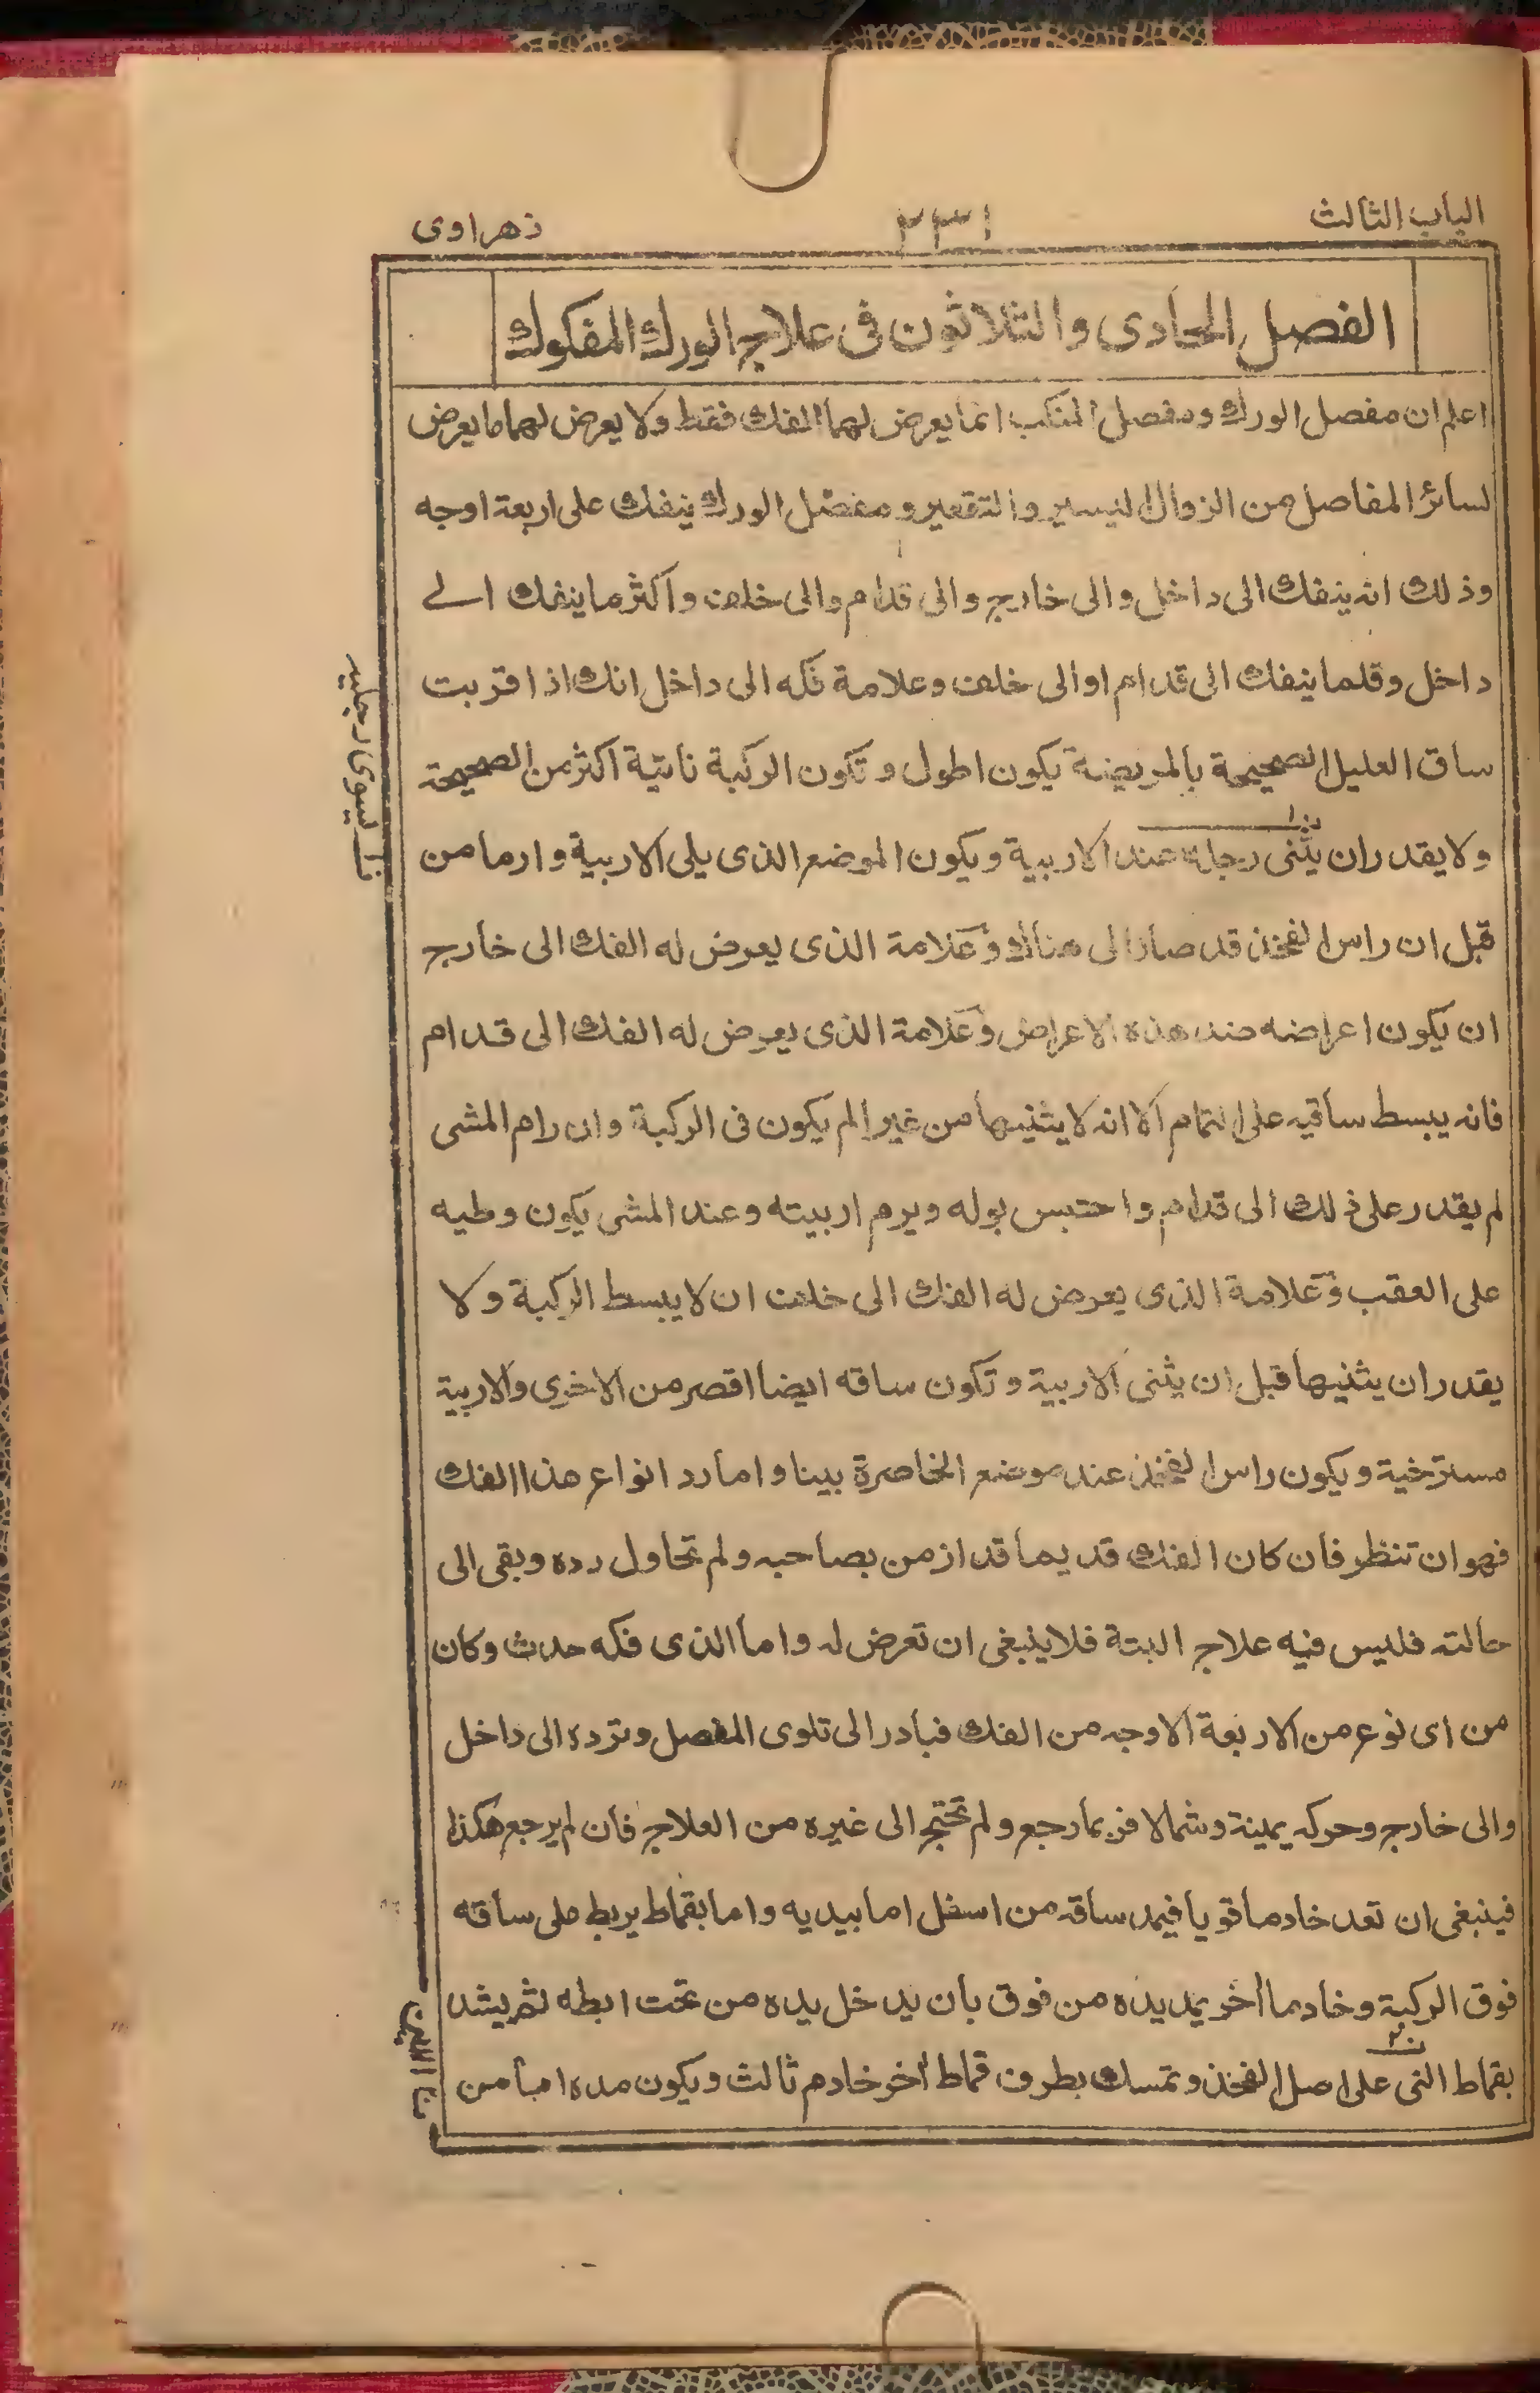 الباب الثالث
٢٣١
زهراوى
الفصل الحادى والثلاثون فى علاج الورك المفكوك
اعلم ان مفصل الورك ومفصل المنكب انما يعرض لهما الفك فقط ولا يعرض لهما ما يعرض
لسائر المفاصل من الزوال اليسير والتقعير ومفصل الورك ينفك على اربعة اوجه
وذلك انه ينفك الى داخل والى خارج والى قدام والى خلف واكثر ما ينفك الے
داخل وقلما ينفك الى قدام او الى خلف وعلامة فكه الى داخل انك اذا قربت
ساق العليل الصحيحة بالمريضة يكون اطول وتكون الركبة ناتية اكثر من الصحيحة
ولا يقدر ان يثنى رجله عند الاربية ويكون الموضع الذى يلى الاربية وارما من
قبل ان راس الفخذ قد صار الى هناك وعلامة الذى يعرض له الفك الى خارج
ان يكون اعراضه ضد هذه الاعراض وعلامة الذى يعرض له الفك الى قدام
فانه يبسط ساقيه على التمام الا انه لا يثنيها من غير الم يكون فى الركبة وان رام المشى
لم يقدر على ذلك الى قدام واحتبس بوله ويرم اربيته وعند المشى يكون وطيه
على العقب وعلامة الذى يعرض له الفك الى خلف ان لا يبسط الركبة ولا
يقدر ان يثنيها قبل ان يثنى الاربية وتكون ساقه ايضا اقصر من الاخرى والاربية
مسترخية ويكون راس الفخذ عند موضع الخاصرة بينا واما رد انواع هذا الفك
فهو ان تنظر فان كان الفك قديما قد ازمن بصاحبه ولم تحاول رده وبقى الى
حالته فليس فيه علاج البتة فلا ينبغى ان تعرض له واما الذى فكه حدث وكان
من اى نوع من الاربعة الاوجه من الفك فبادر الى تلوى المفصل وترده الى داخل
والى خارج وحركه يمينة وشمالا فربما رجع ولم تحتج الى غيره من العلاج فان لم يرجع هكذا
فينبغى ان تعد خادما قويا فيمد ساقه من اسفل اما بيديه واما بقماط يربط على ساقه
فوق الركبة وخادما أخر يمد يده من فوق بان يدخل يده من تحت ابطه ثم يشد
بقماط التى على اصل الفخذ وتمسك بطرف قماط أخر خادم ثالث ويكون مده اما من